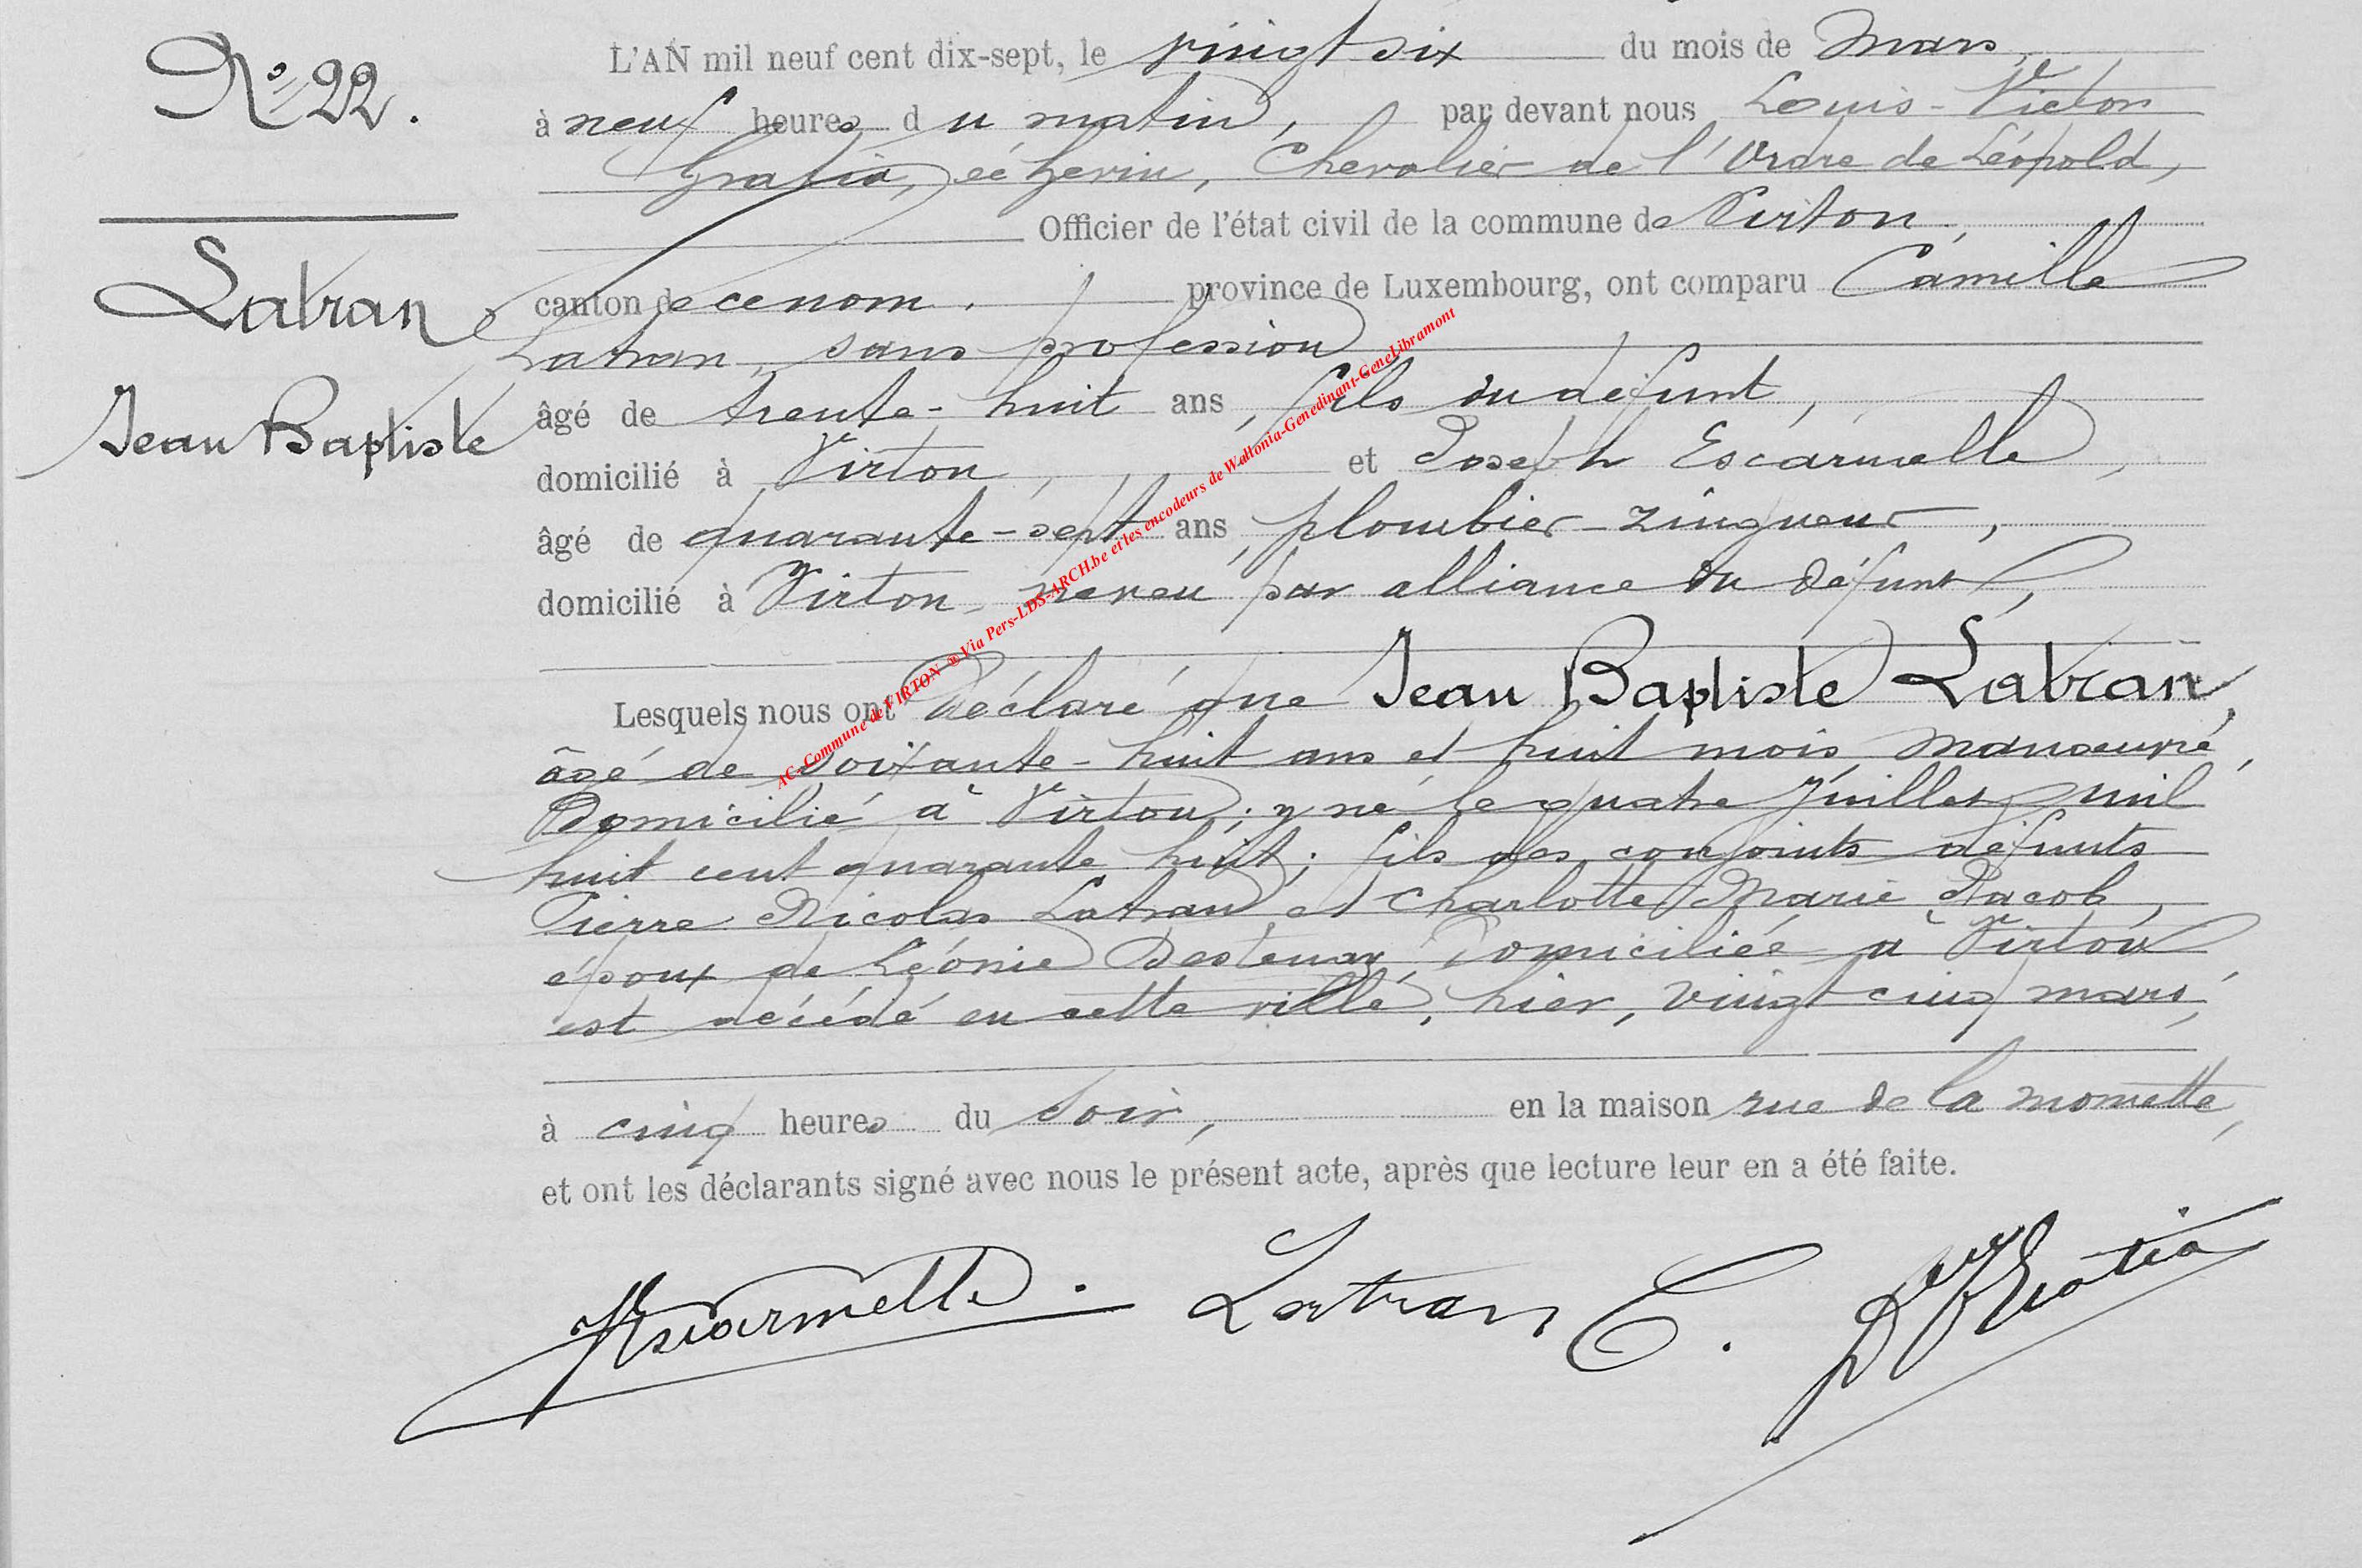 N° 22.
L'AN mil neuf cent dix-sept, le vingt six du mois de Mars,
à neuf heures du matin, par devant nous Louis-Victor
Gratia, échevin, Chevalier de l'Ordre de Léopold,
Officier de l'état civil de la commune de Virton,
Latran
canton de ce nom. province de Luxembourg, ont comparu Camille
Latran, sans profession
Jean Baptiste
âgé de trente-huit ans, fils du défunt,
domicilié à Virton, et Joseph Escarmelle,
âgé de quarante-sept ans, plombier-zingueur,
domicilié à Virton, neveu par alliance du défunt,
Lesquels nous ont déclaré que Jean Baptiste Latran,
âgé de soixante-huit ans et huit mois, manœuvre,
Domicilié à Virton; y né le quatre Juillet mil
huit cent quarante huit; fils des conjoints défunts
Pierre Nicolas Latran et Charlotte Marie Jacob,
époux de Léonie Destenay Domiciliée à Virton
est décédé en cette ville, hier, vingt cinq mars,
à cinq heures du soir, en la maison rue de la momette,
et ont les déclarants signé avec nous le présent acte, après que lecture leur en a été faite.
Escarmelle. Latran C. Gratia
AC-Commune de VIRTON @Via Pers-LDS-ARCH.be et les encodeurs de Wallonia-Genedinant-GeneLibramont